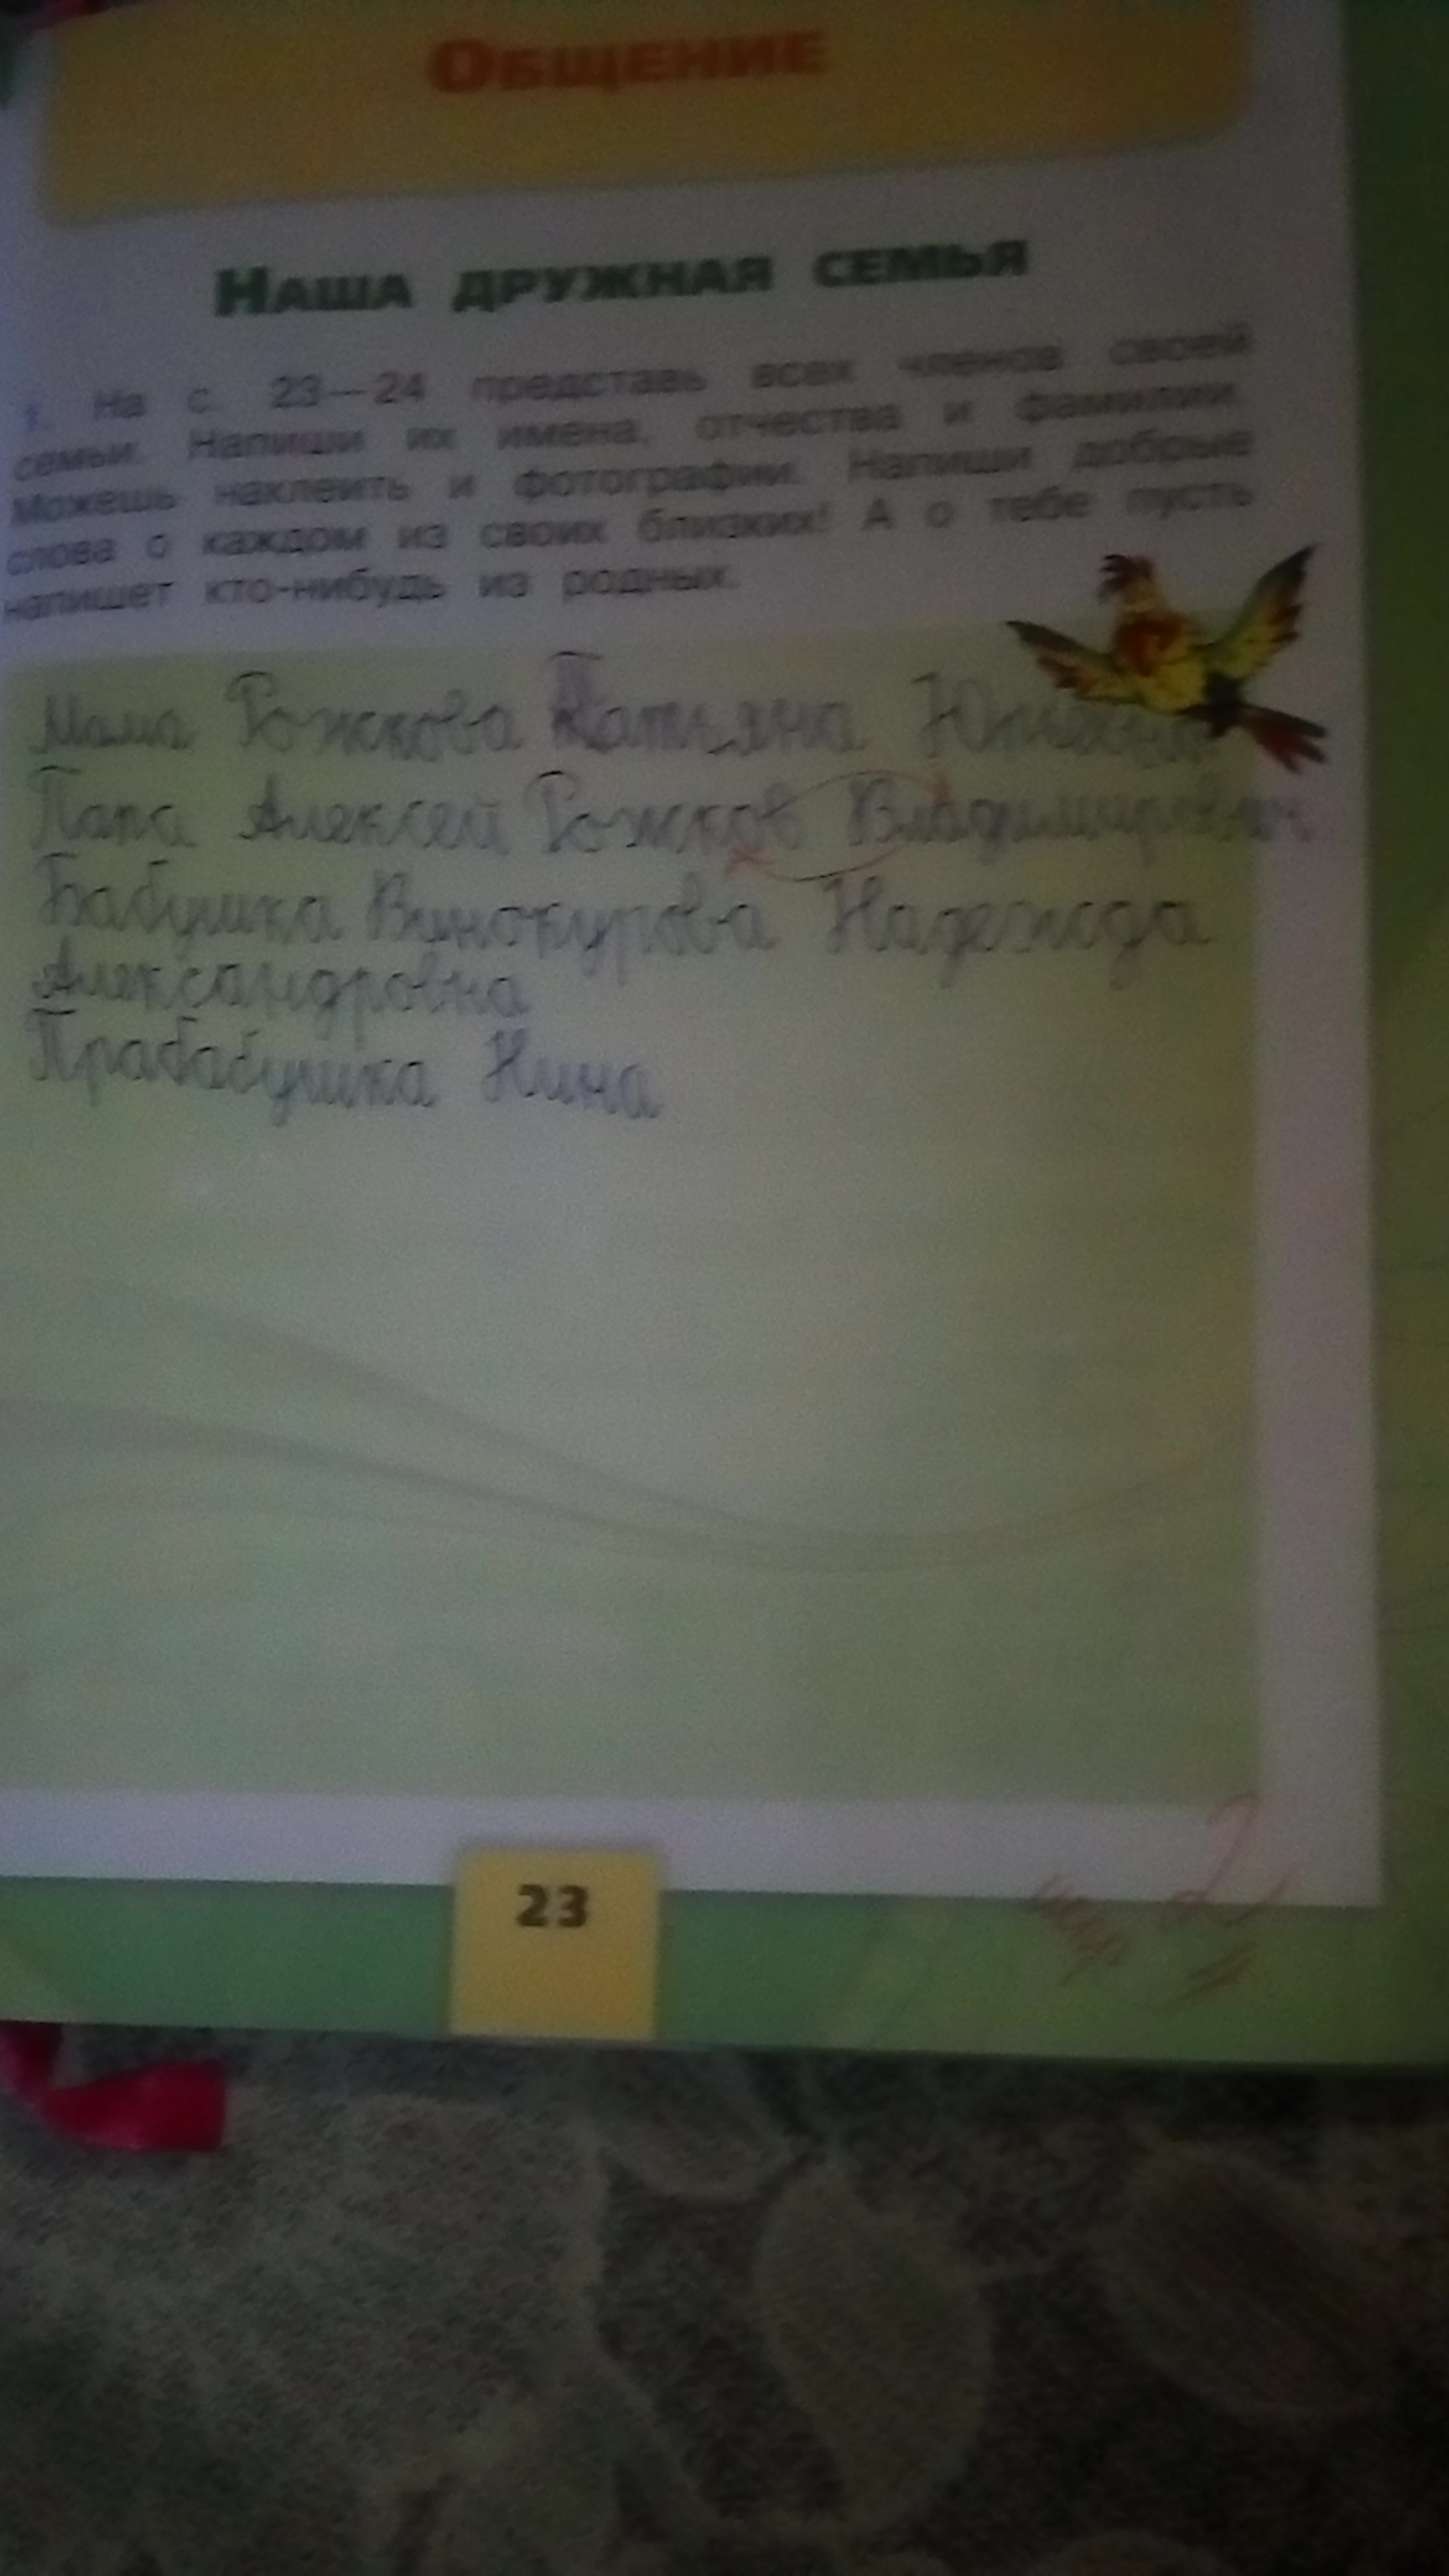 ОБЩЕНИЕ
НАША ДРУЖНАЯ СЕМЬЯ
1. На с. 23—24 представь всех членов своей
семьи. Напиши их имена, отчества и фамилии.
Можешь наклеить и фотографии. Напиши добрые
слова о каждом из своих близких! А о тебе пусть
напишет кто-нибудь из родных.
Мама Рожкова Татьяна
Папа Алексей Рожков Владимирович
Бабушка Винокурова Надежда
Александровна
Прабабушка Нина
23